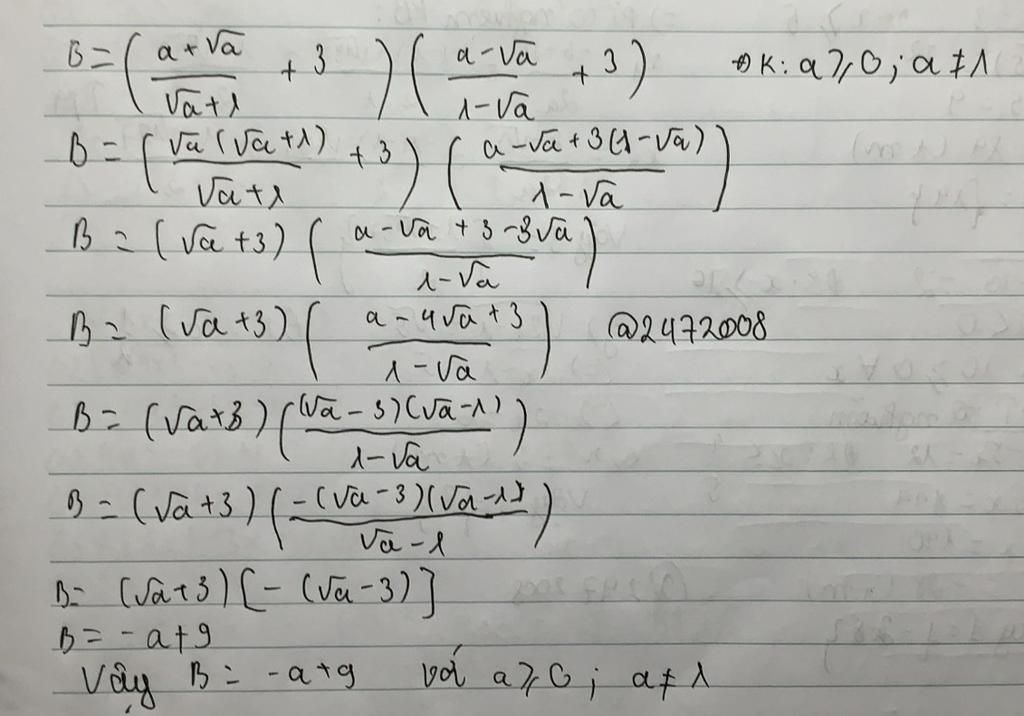 B = ( (a + √a)/(√a + 1) + 3 ) ( (a - √a)/(1 - √a) + 3 ) ĐK: a ≥ 0 ; a ≠ 1
B = ( (√a (√a + 1))/(√a + 1) + 3 ) ( (a - √a + 3(1 - √a))/(1 - √a) )
B = (√a + 3) ( (a - √a + 3 - 3√a)/(1 - √a) )
B = (√a + 3) ( (a - 4√a + 3)/(1 - √a) ) @2472008
B = (√a + 3) ( ((√a - 3)(√a - 1))/(1 - √a) )
B = (√a + 3) ( (-(√a - 3)(√a - 1))/(√a - 1) )
B = (√a + 3) [ - (√a - 3) ]
B = -a + 9
Vậy B = -a + 9 với a ≥ 0 ; a ≠ 1